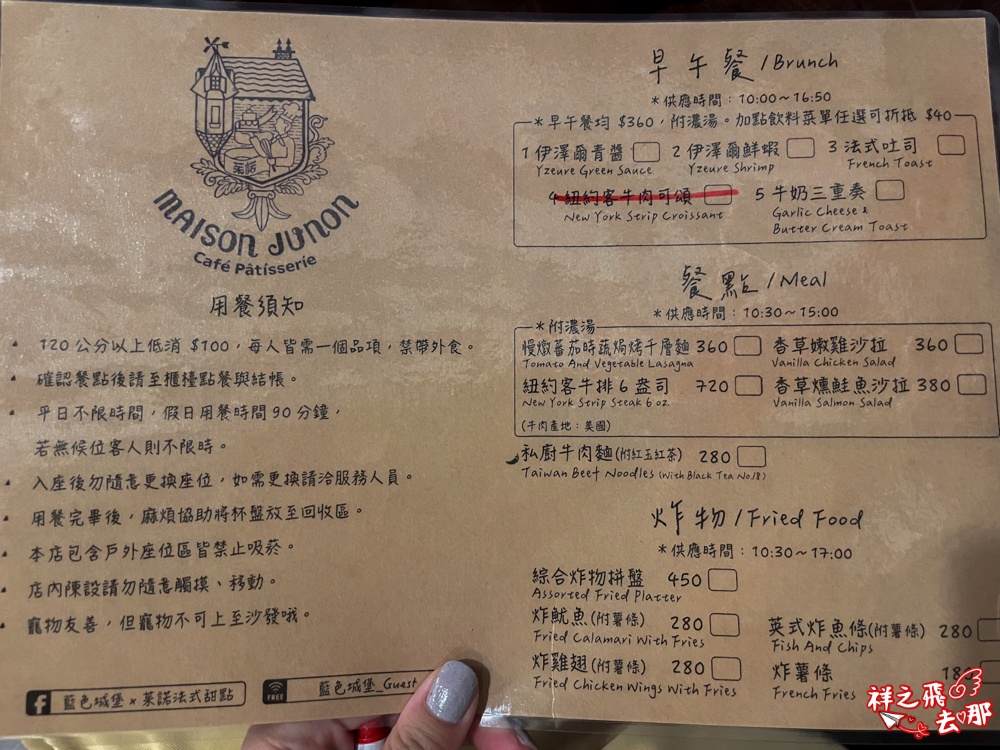 茱諾
MAISON JUNON
Café Pâtisserie
用餐須知
120 公分以上低消 $100,每人皆需一個品項,禁帶外食。
確認餐點後請至櫃檯點餐與結帳。
平日不限時間,假日用餐時間90分鐘,
若無候位客人則不限時。
入座後勿隨意更換座位,如需更換請洽服務人員。
用餐完畢後,麻煩協助將杯盤放至回收區。
本店包含戶外座位區皆禁止吸菸。
店內陳設請勿隨意觸摸、移動。
寵物友善,但寵物不可上至沙發哦。
藍色城堡 x 茱諾法式甜點
FREE 藍色城堡_Guest
早午餐/Brunch
*供應時間:10:00~16:50
*早午餐均 $360,附濃湯。加點飲料菜單任選可折抵 $40
1 伊澤爾青醬 2 伊澤爾鮮蝦 3 法式吐司
Yzeure Green Sauce Yzeure Shrimp French Toast
4 紐約客牛肉可頌 5 牛奶三重奏
New York Strip Croissant Garlic Cheese &
Butter Cream Toast
餐點/Meal
*供應時間:10:30~15:00
*附濃湯
慢燉蕃茄時蔬焗烤千層麵 360 香草嫩雞沙拉 360
Tomato And Vegetable Lasagna Vanilla Chicken Salad
紐約客牛排 6 盎司 720 香草燻鮭魚沙拉 380
New York Strip Steak 6 oz. Vanilla Salmon Salad
(牛肉產地:美國)
私廚牛肉麵(附紅玉紅茶) 280
Taiwan Beef Noodles (With Black Tea No.18)
炸物/Fried Food
*供應時間:10:30~17:00
綜合炸物拼盤 450
Assorted Fried Platter
炸魷魚(附薯條) 280 英式炸魚條(附薯條) 280
Fried Calamari With Fries Fish And Chips
炸雞翅(附薯條) 280 炸薯條 180
Fried Chicken Wings With Fries French Fries
祥之飛
去那